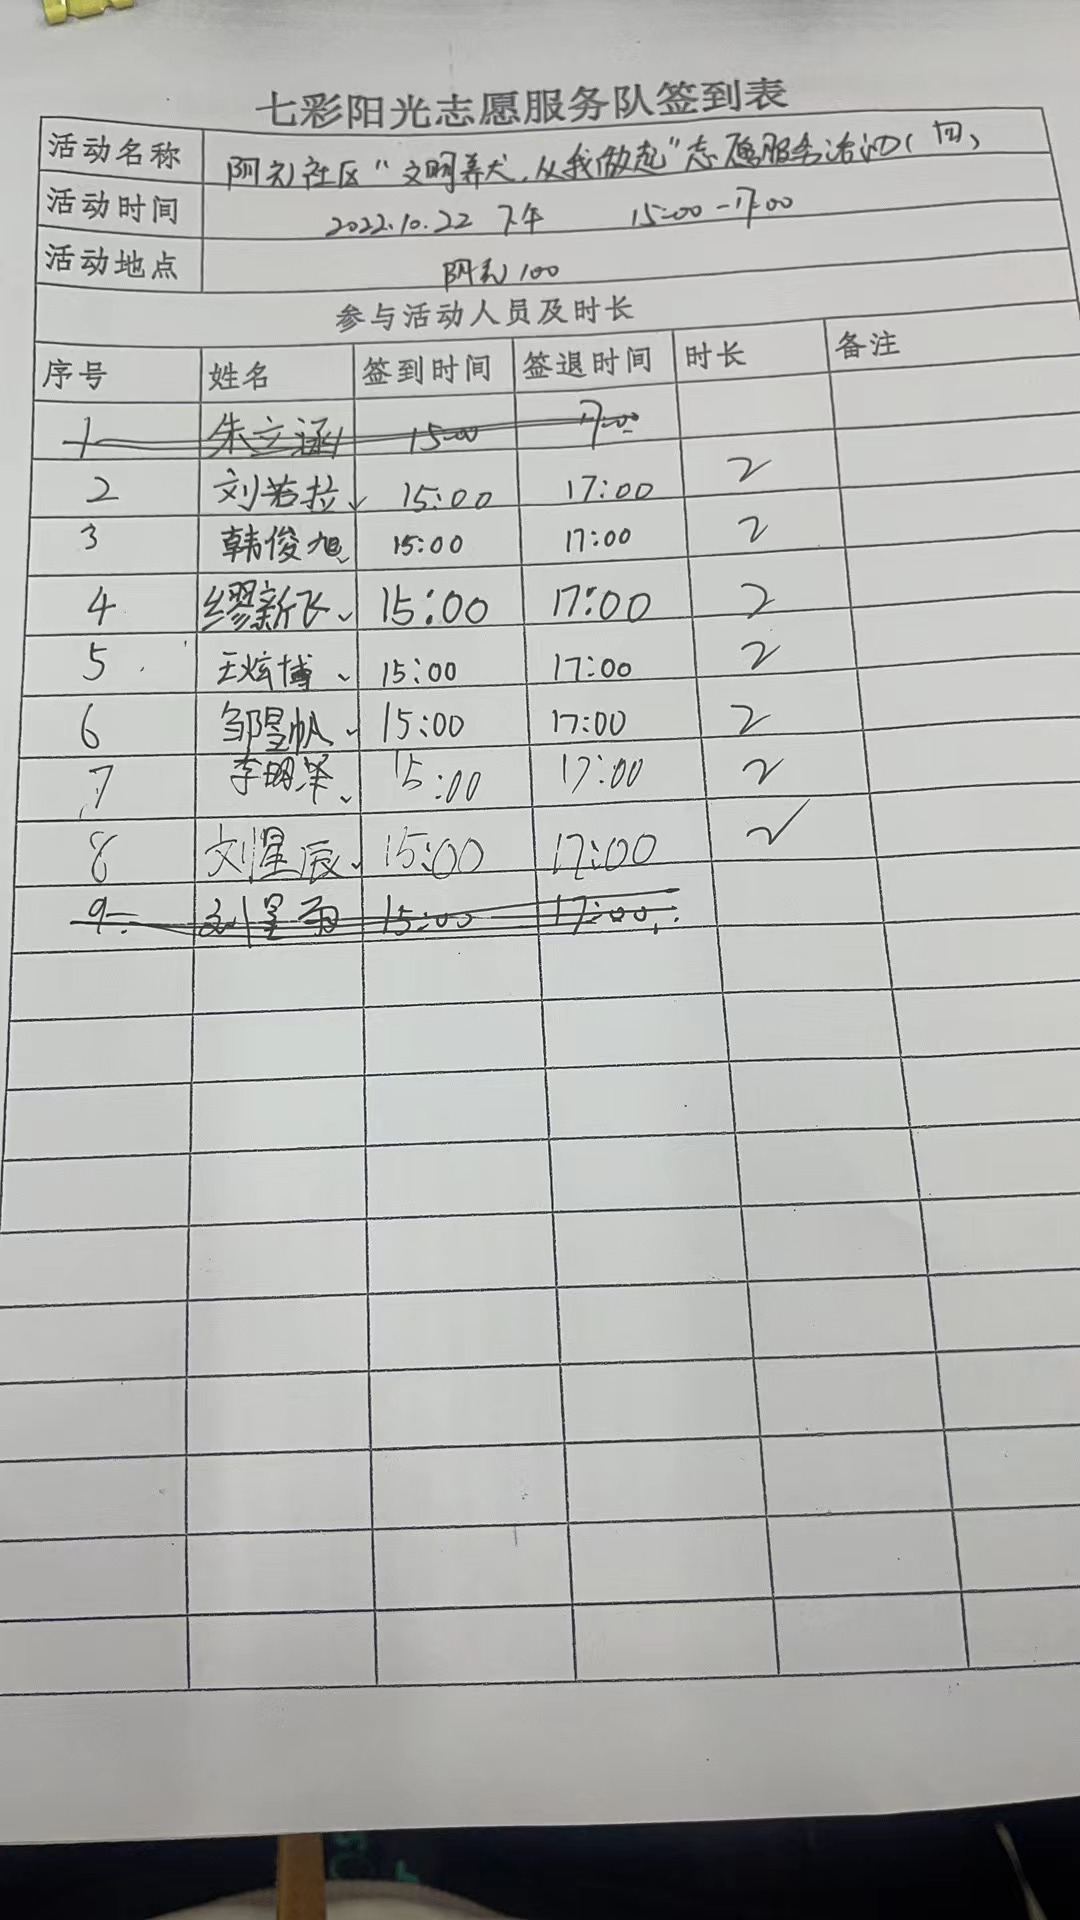 七彩阳光志愿服务队签到表
活动名称 社区"文明养犬,从我做起"志愿服务活动(四)
活动时间 2022.10.22 下午 15:00-17:00
活动地点 100
参与活动人员及时长
序号 姓名 签到时间 签退时间 时长 备注
1 朱立涵 15:00 17:00
2 刘若拉 15:00 17:00 2
3 韩俊旭 15:00 17:00 2
4 缪新飞 15:00 17:00 2
5 王炫博 15:00 17:00 2
6 邹昱帆 15:00 17:00 2
7 李明泽 15:00 17:00 2
8 刘星辰 15:00 17:00 2
9 刘星雨 15:00 17:00